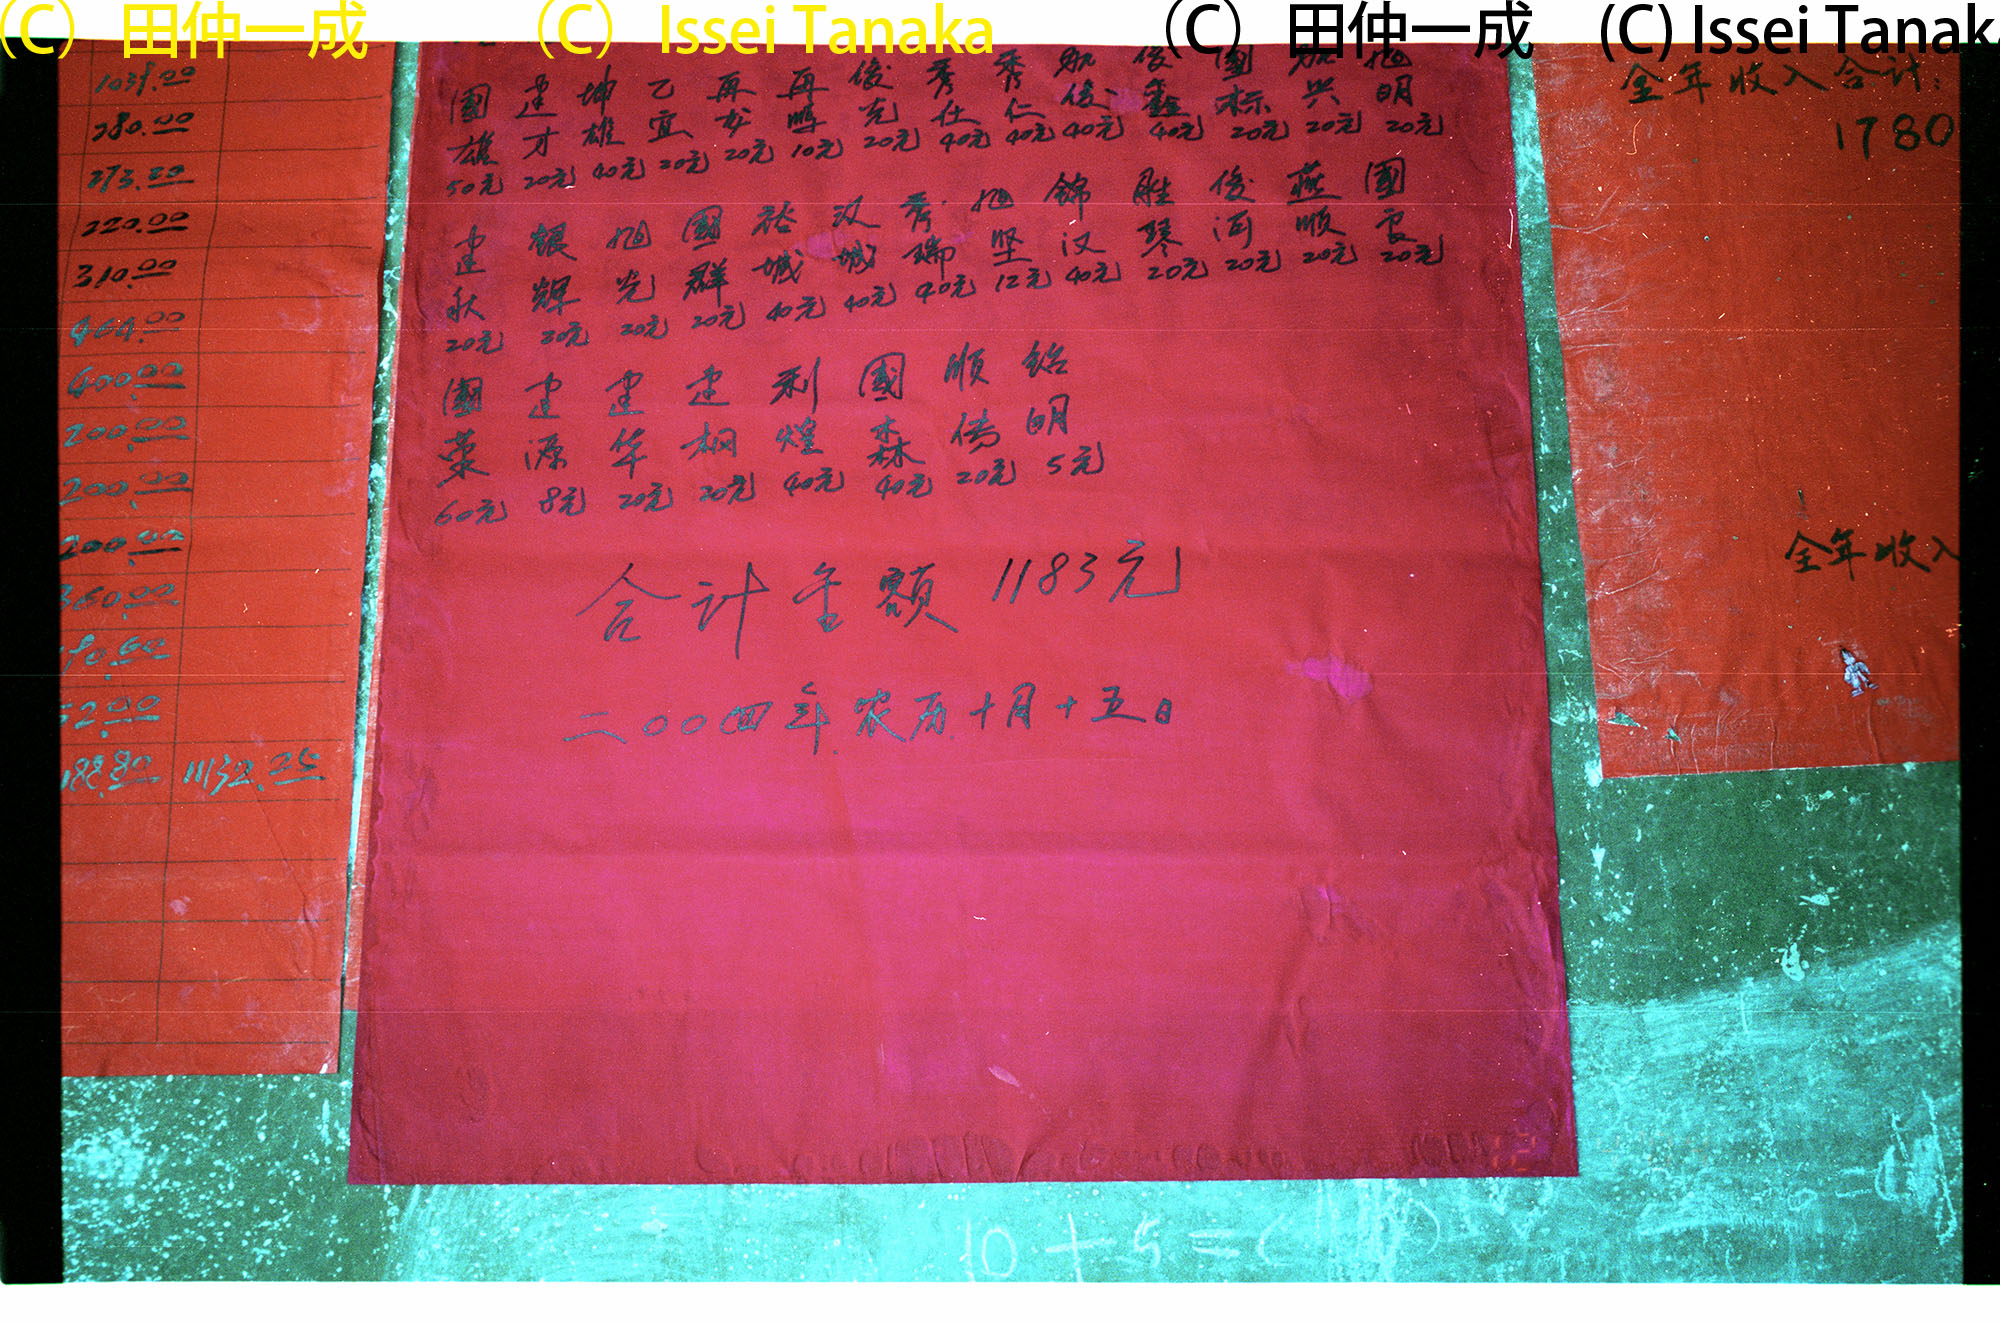 (C) 田仲一成 (C) Issei Tanaka (C) 田仲一成 (C) Issei Tanaka
1039.00
280.00
273.20
220.00
310.00
464.00
400.00
200.00
200.00
200.00
360.00
52.00
188.80 11132.25
國雄 建才 坤雄 乙宜 再 再鵬 俊充 秀仕 秀仁 俊 俊鑫 國标 兴 旭明
50元 20元 40元 20元 20元 10元 20元 40元 40元 40元 40元 20元 20元 20元
建秋 银輝 旭光 國群 裕城 汉城 秀瑞 旭坚 錦汉 胜琴 俊河 燕顺 國良
20元 20元 20元 20元 40元 40元 40元 12元 40元 20元 20元 20元 20元
國荣 建源 建华 建桐 利煌 國森 順传 铭明
60元 8元 20元 20元 40元 40元 20元 5元
合计金额 1183元
二〇〇四年农历十月十五日
全年收入合计:
1780
全年收入
10+5=(